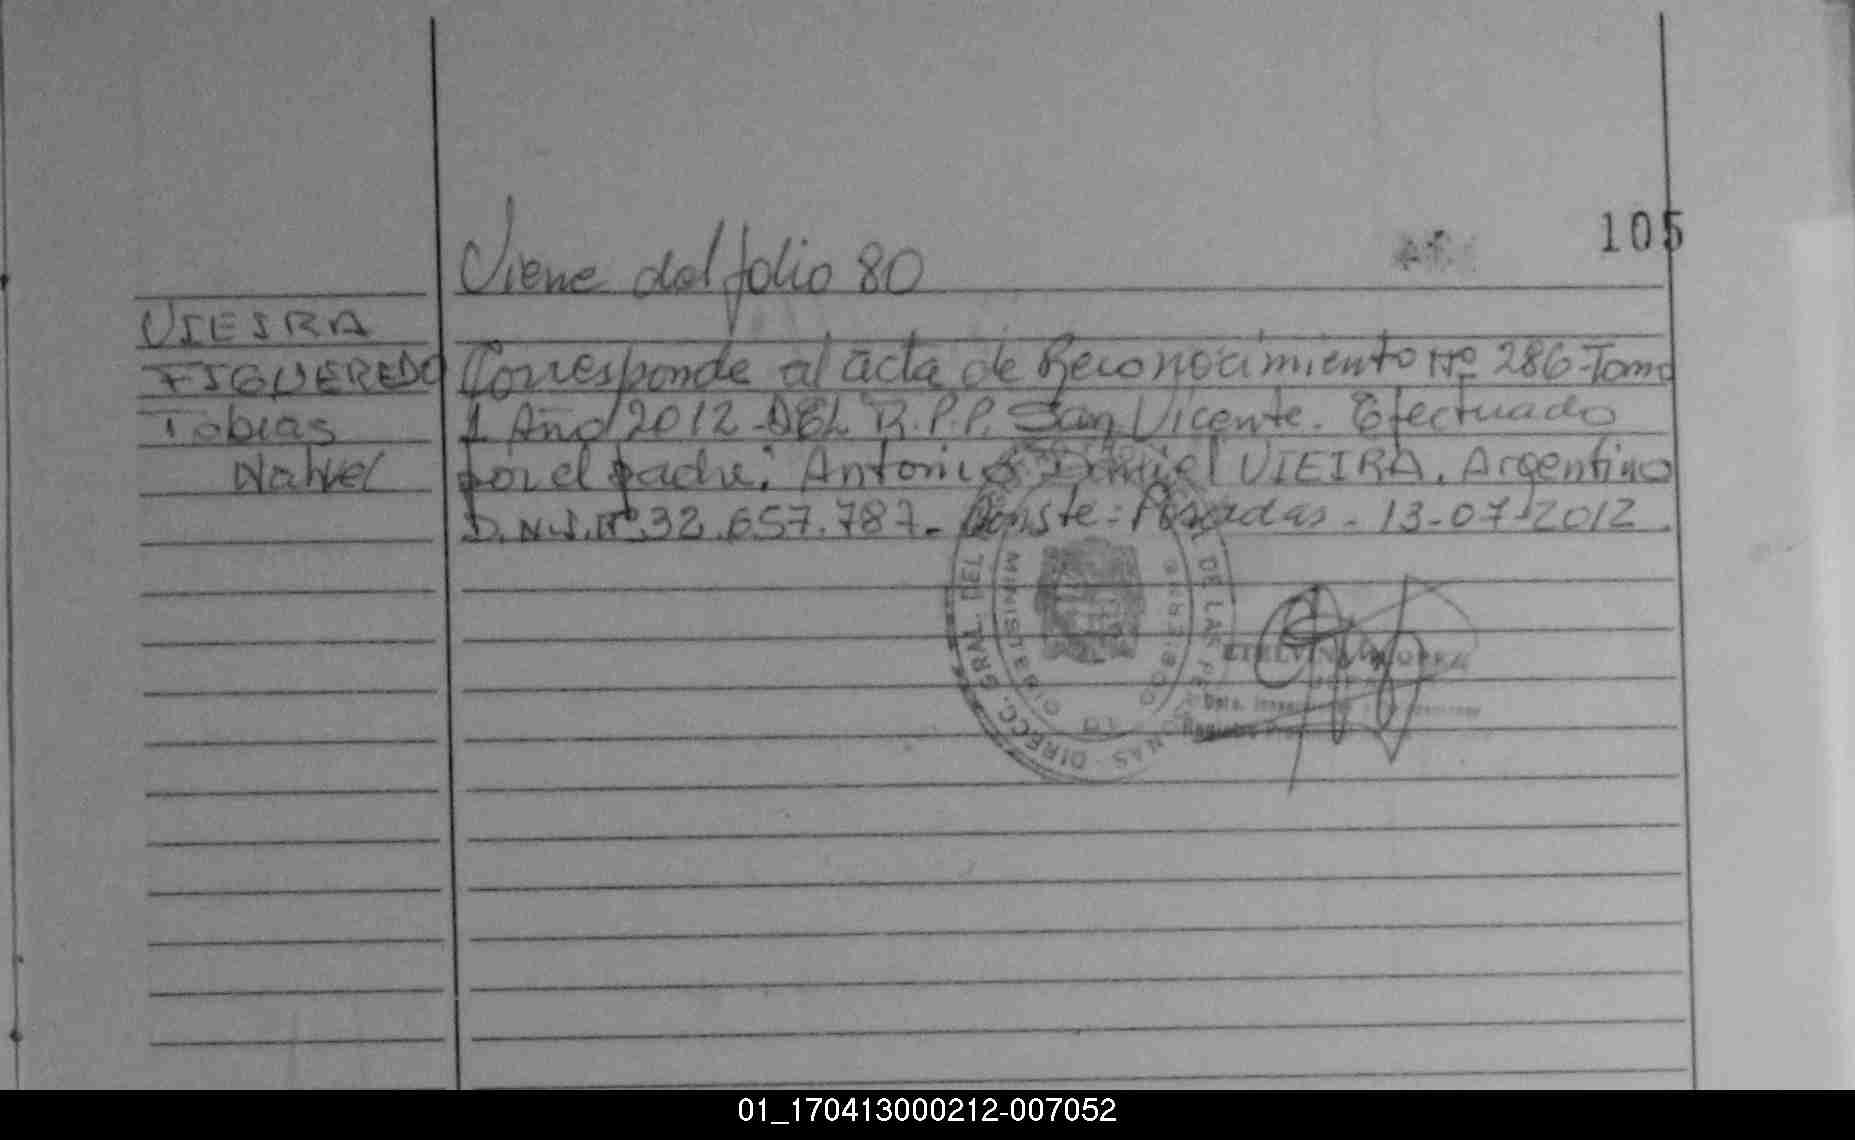 105
Viene del folio 80
VIEIRA
FIGUEREDO
Tobias
Nahuel
Corresponde al acta de Reconocimiento Nº 286-Tomo
1 Año 2012-DEL R.P.P. San Vicente. Efectuado
por el padre: Antonio Daniel VIEIRA. Argentino
D.N.I. Nº 32.657.787- Conste: Posadas - 13-07-2012.
DIRECC. GRAL. DEL DE LAS PERSONAS
MINISTERIO DE GOBIERNO
Dpto.
Registro
01_170413000212-007052